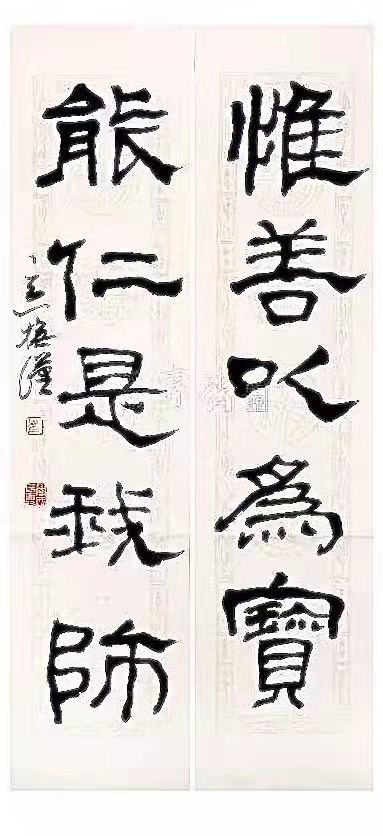 惟善以為寶
能仁是我師